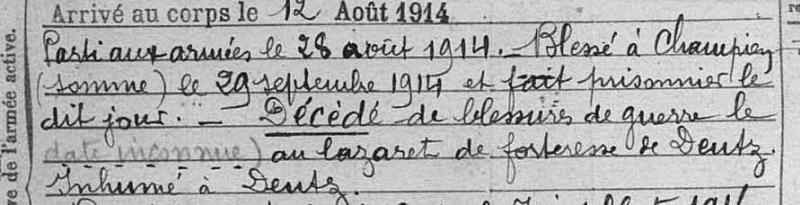 Arrivé au corps le 12 Août 1914
Parti aux armées le 28 août 1914. - Blessé à Champien
(Somme) le 29 septembre 1914 et fait prisonnier le
dit jour. - Décédé de blessures de guerre le
date inconnue) au lazaret de forteresse de Deutz.
Inhumé à Deutz.
ve de l'armée active.